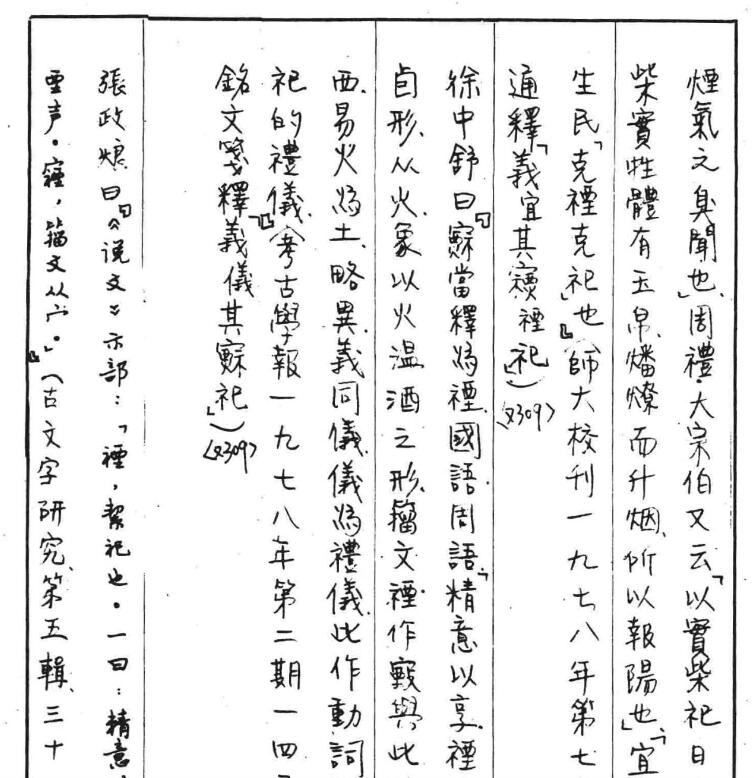 煙氣之臭聞也」周禮·大宗伯又云「以實柴祀日
柴實牲體有玉帛燔燎而升烟、所以報陽也」「宜
生民「克禋克祀」也』(師大校刊一九七八年第七
通釋「義宜其禋祀」)〈2309〉
徐中舒曰『當釋為禋、國語周語、「精意以享禋
卣形、从火、象以火溫酒之形、籀文禋作與此
西、易火為土、略異、義同儀、儀為禮儀、此作動詞
祀的禮儀、』(考古學報一九七八年第二期一四
銘文箋釋「義儀其祀」)〈2309〉
張政烺曰『《说文》示部:「禋,絜祀也。一曰:精意
垔声。籀文从宀。」』(古文字研究、第五輯、三十